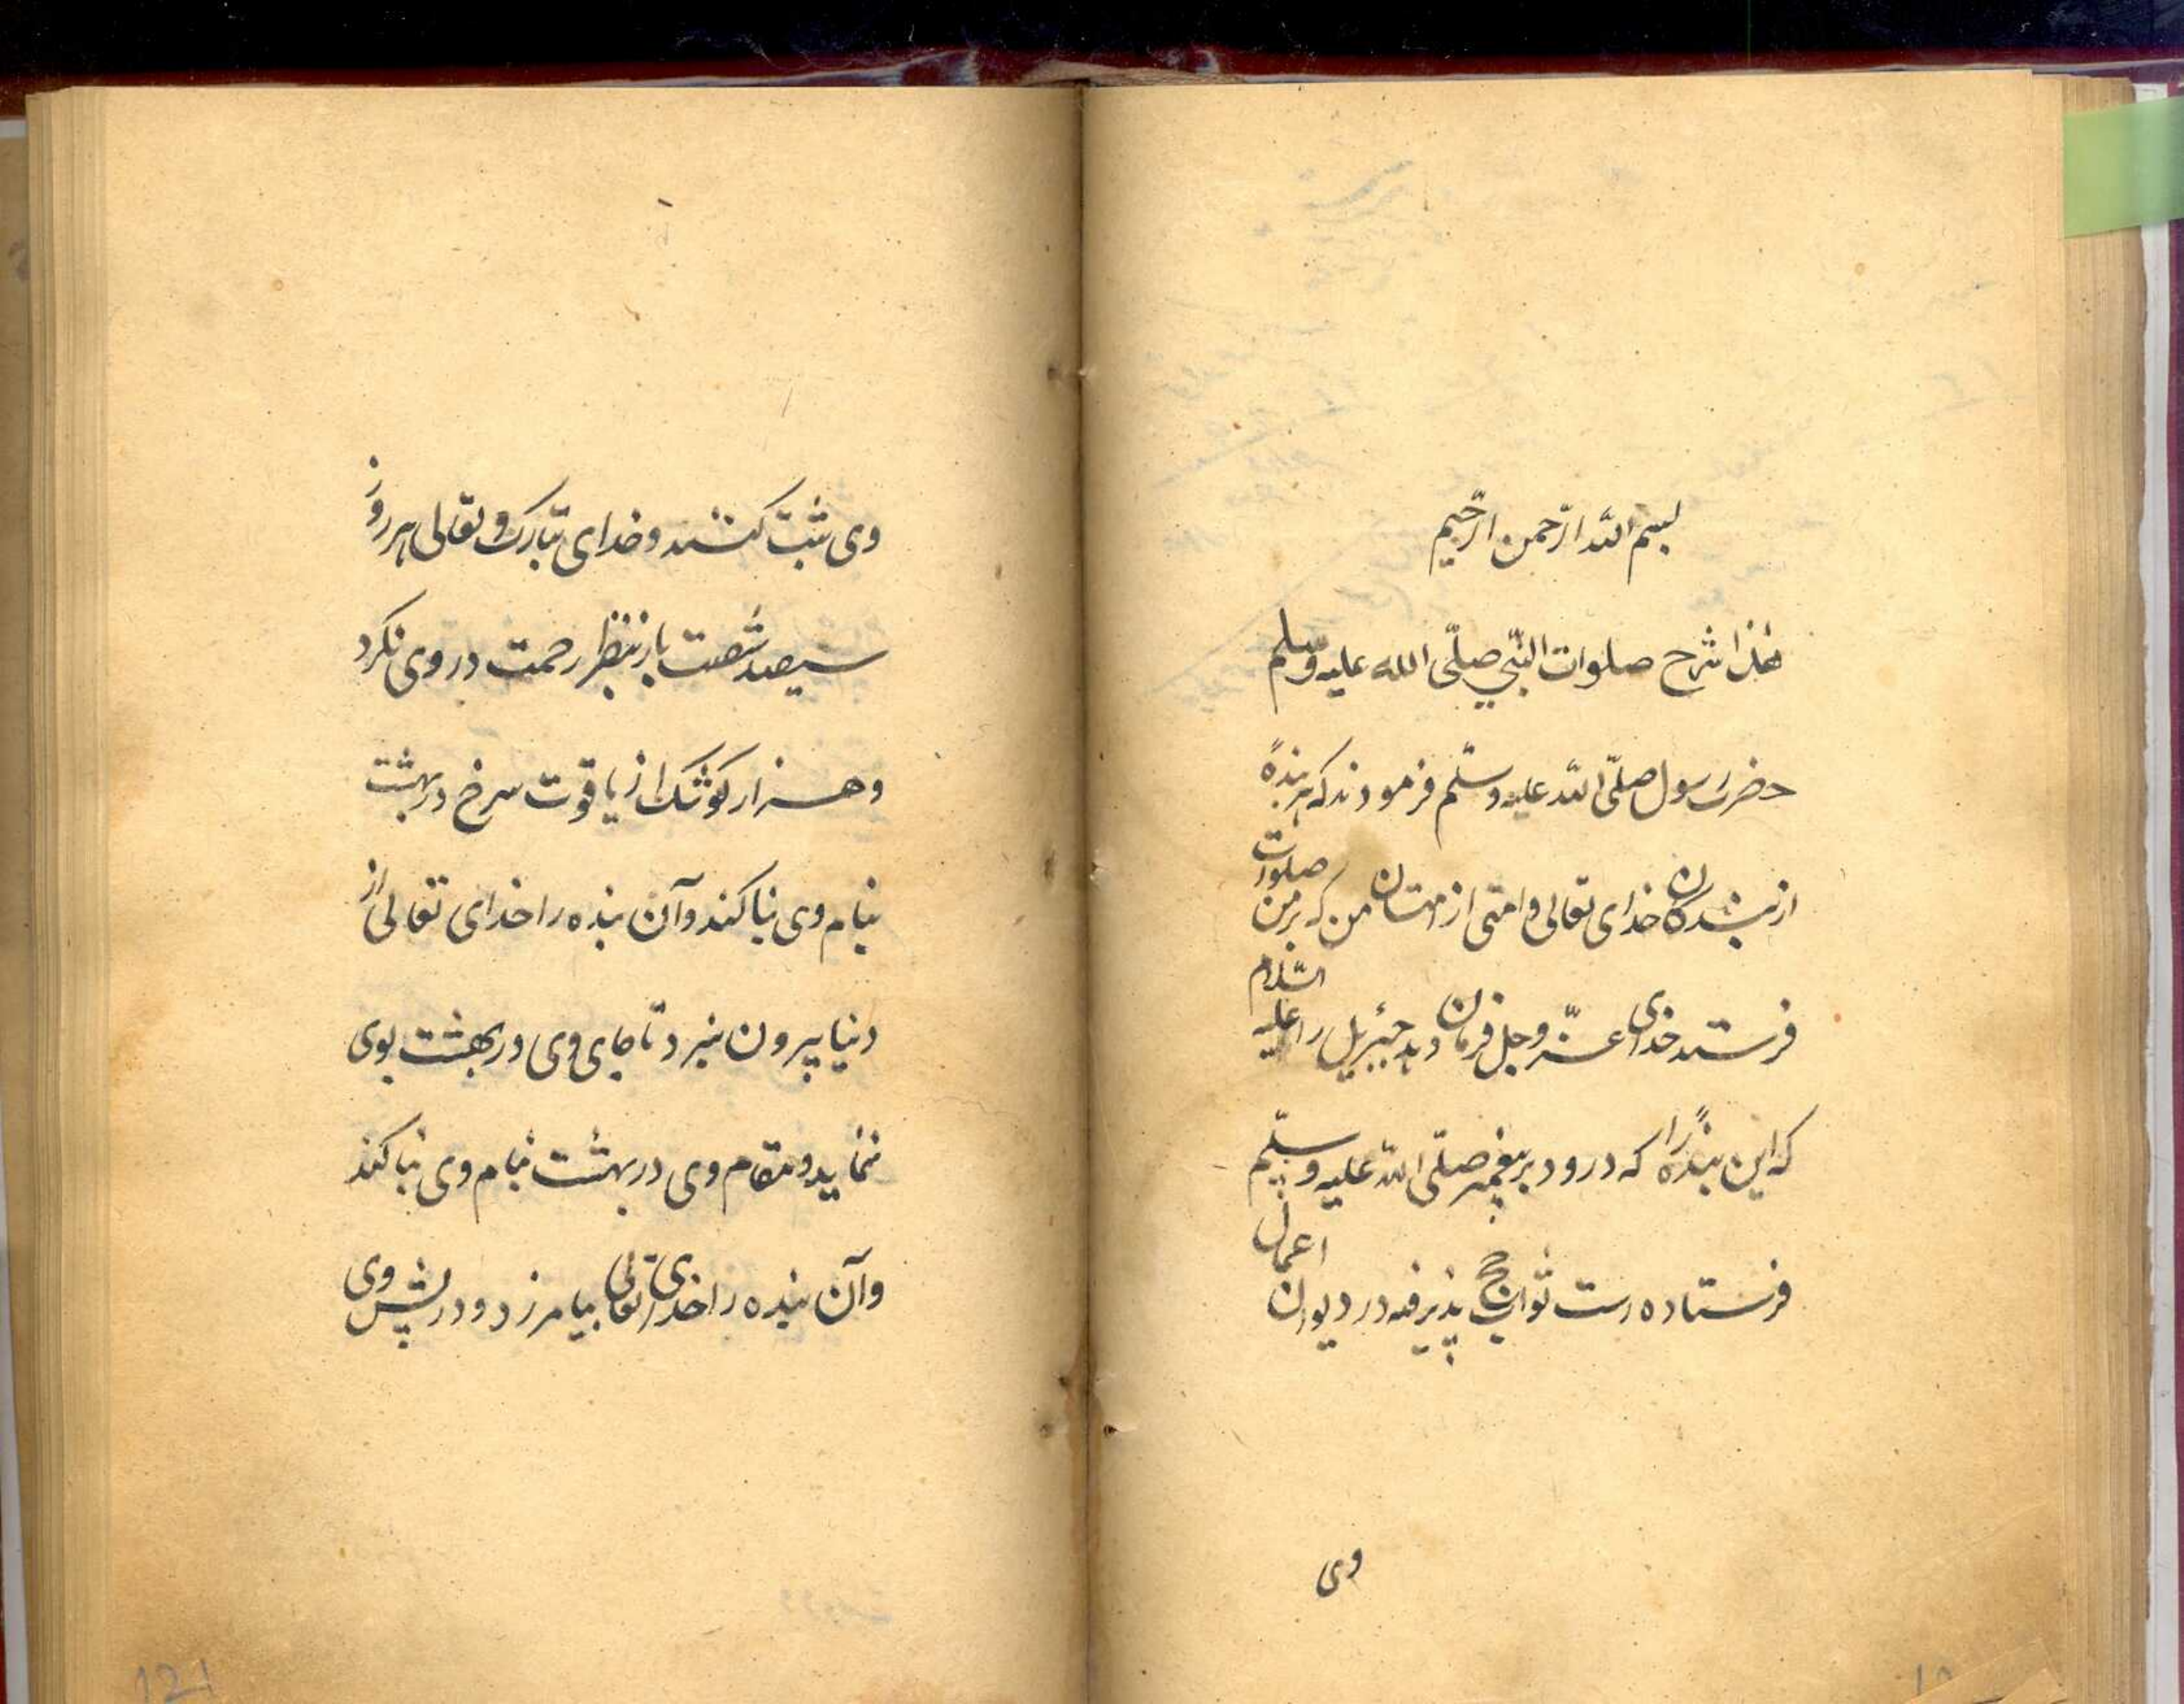 بسم الله الرّحمن الرّحیم
هٰذا شرح صلوات النّبی صلّی الله علیه وسلّم
حضرت رسول صلّی الله علیه وسلّم فرمودند که هر بندهٔ
از بندگان خدای تعالی و امتی از امتان من که بر من صلوات
فرستد خدای عزّ وجل فرمان دهد جبرئیل را علیه السّلام
که این بندهٔ را که درود بر پیغمبر صلّی الله علیه وسلّم
فرستاده است ثواب حج پذیرفته در دیوان اعمال
وی
وی ثبت کنند و خدای تبارک و تعالی هر روز
سیصد شصت بار بنظر رحمت در وی نکرد
و هزار کوشک از یاقوت سرخ در بهشت
بنام وی بنا کند و آن بنده را خدای تعالی از
دنیا بیرون نبرد تا جای وی در بهشت بوی
ننماید و مقام وی در بهشت بنام وی بنا کند
و آن بنده را خدای تعالی بیامرزد و در پیش وی
121